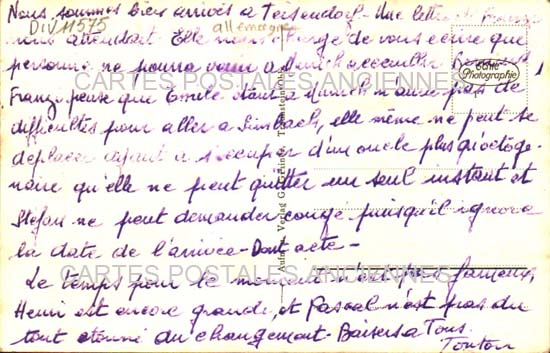 Nous sommes bien arrivés à Teisendorf - Une lettre de Franzi
DIV11575
allemagne
nous attendait. Elle nous charge de vous écrire que
personne ne pourra venir à Munich accueillir
Echte Photographie
CARTES POSTALES ANCIENNES
Franzi pense que Emile étant à Munich n'aura pas de
difficultés pour aller à Simbach, elle même ne peut se
déplacer ayant à s'occuper d'un oncle plus qu'octogé-
naire qu'elle ne peut quitter un seul instant et
Stefan ne peut demander congé puisqu'il ignore
la date de l'arrivée - Dont acte -
CARTES POSTALES ANCIENNES
Le temps pour le moment n'est pas fameux,
Henri est encore grande, et Pascal n'est pas du
tout étonné du changement - Baisers à Tous
Tonton